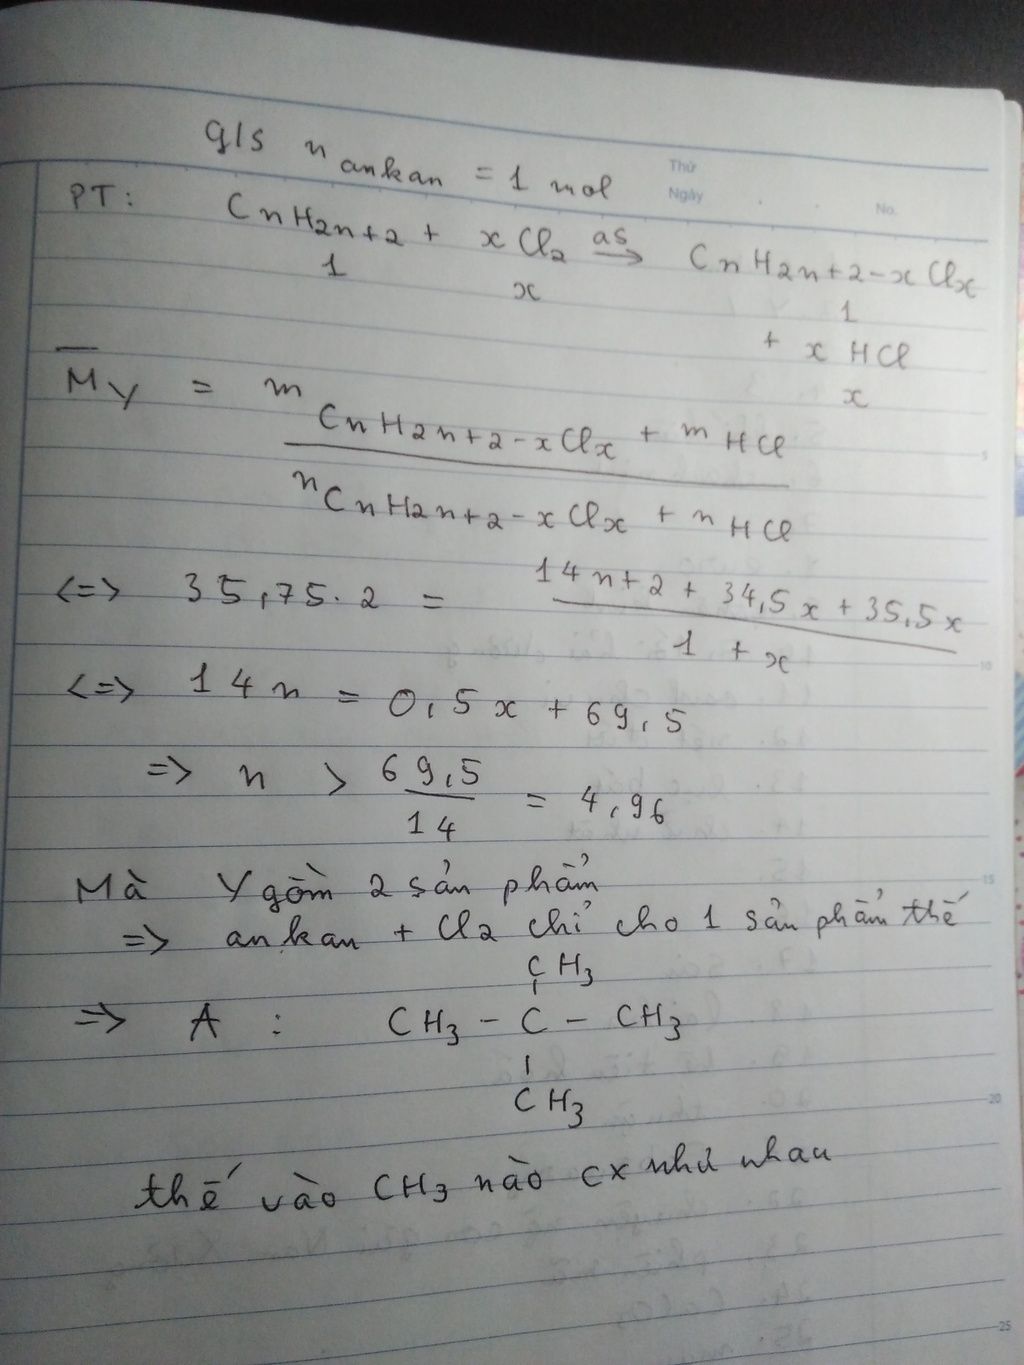 g/s n ankan = 1 mol
Thứ
Ngày
No.
PT: CnH2n+2 + xCl2 as→ CnH2n+2-xClx
1 x 1
+ x HCl
x
M̅Y = mCnH2n+2-xClx + mHCl
nCnH2n+2-xClx + nHCl
<=> 35,75.2 = 14n+2 + 34,5x + 35,5x
1 + x
<=> 14n = 0,5x + 69,5
=> n > 69,5
14
= 4,96
Mà Y gồm 2 sản phẩm
=> ankan + Cl2 chỉ cho 1 sản phẩm thế
CH3
=> A : CH3 - C - CH3
CH3
thế vào CH3 nào cx như nhau
5
10
15
20
25